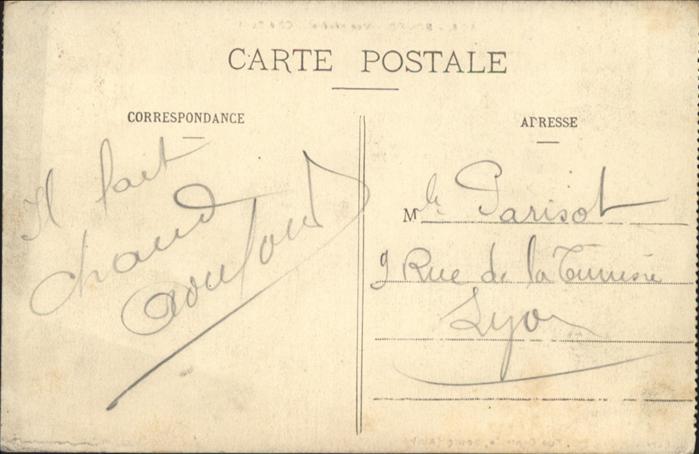 CARTE POSTALE
CORRESPONDANCE
ADRESSE
Il fait
chaud
M Parisot
9 Rue de la Tunisie
Lyon